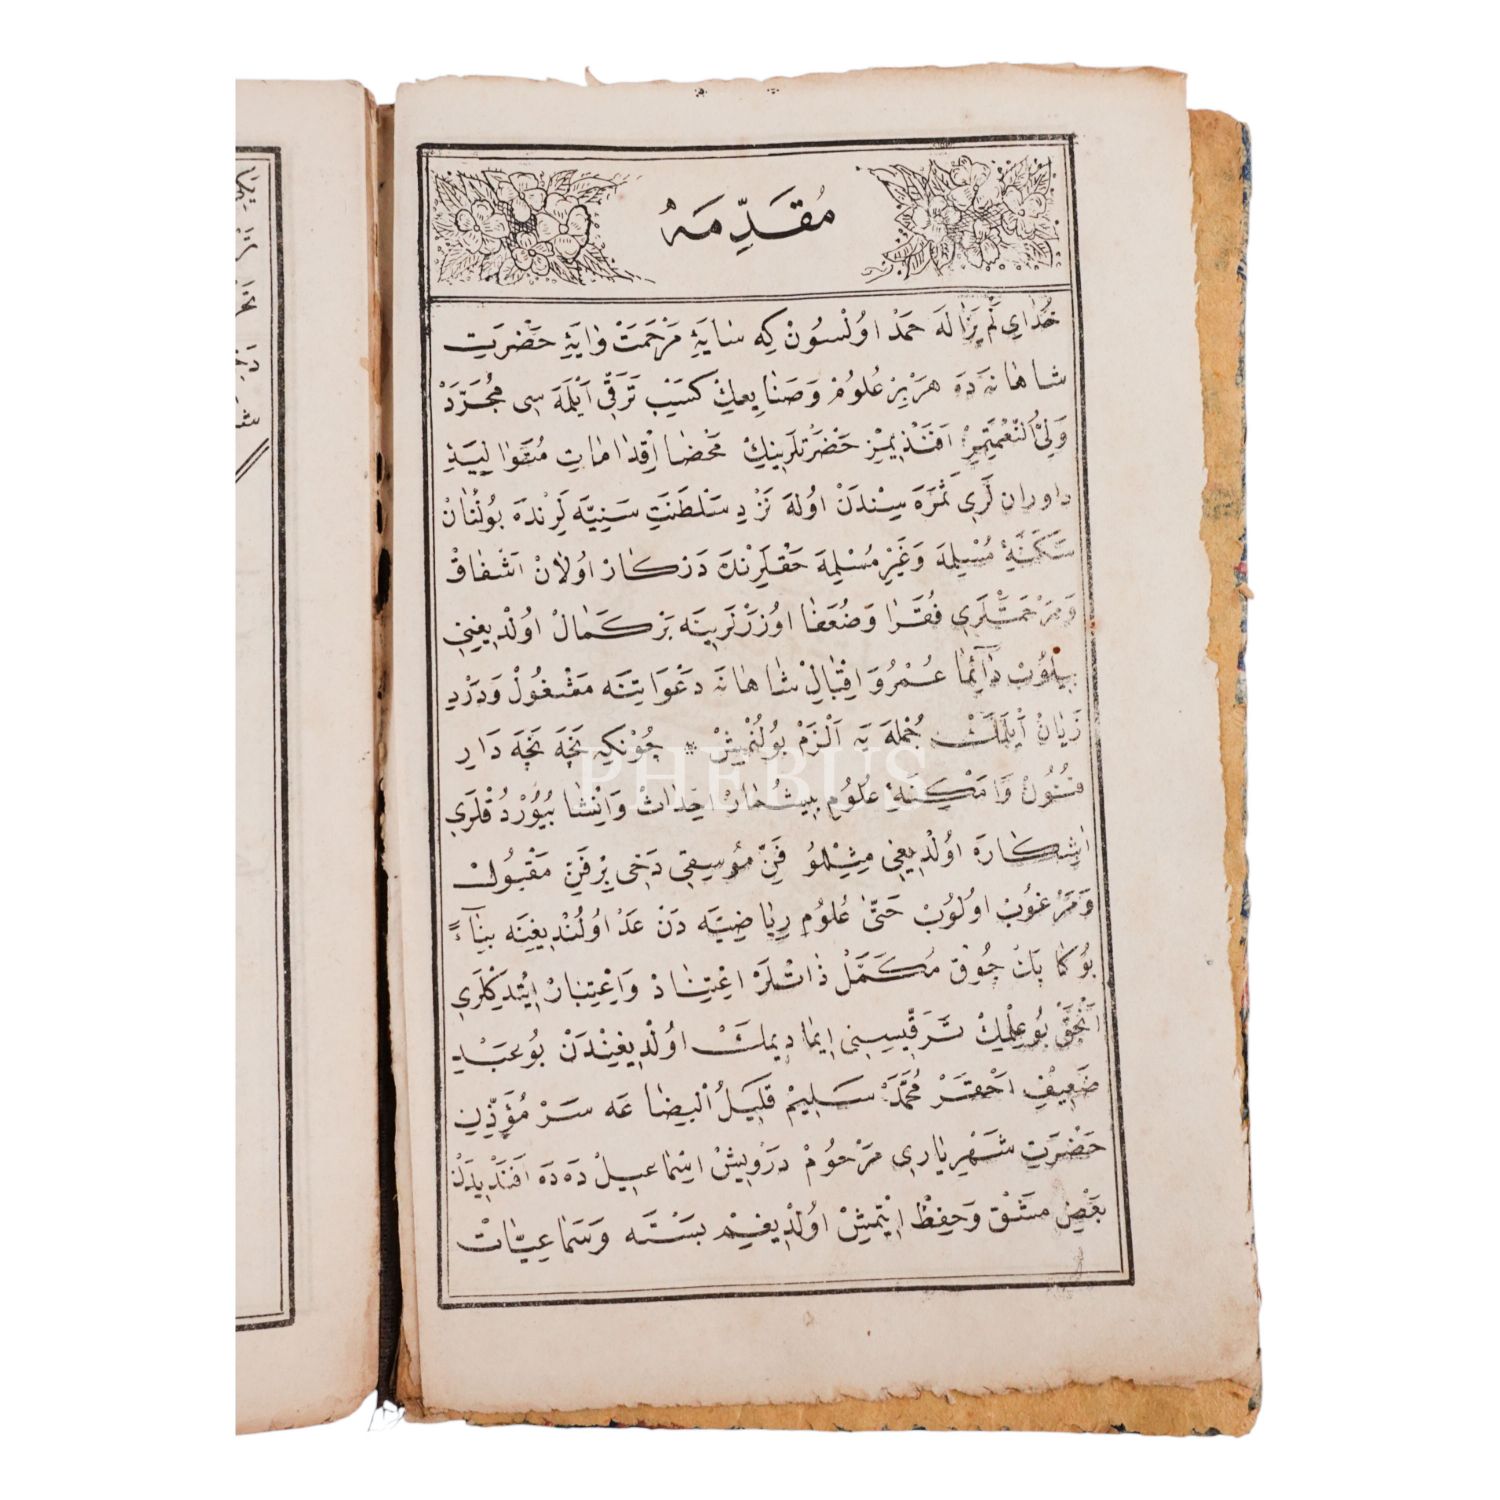 مُقَدِّمَهُ
خُدَايِ لَمْ يَزَالَه حَمْدْ اوُلْسُونْ كِه سَايَۀِ مَرْحَمَتْ وَايَۀِ حَضْرَتِ
شَاهَانَه دَه هَرْ بِرْ عُلُومْ وَصَنَايِعكِ كَسْبِ تَرَقِّي اَيْلَمَه سِي مُجَرَّدْ
وَلِيُّ النِّعْمَتِمِزْ اَفَنْدِيمِزْ حَضْرَتْلَرِينِكْ مَحْضَا اِقْدَامَاتِ مُتَوَالِيَهِ
دَاوَرَانَه لَرِي ثَمَرَه سِنْدَنْ اوُلَه نَزْدِ سَلْطَنَتِ سَنِيَّه لَرِنْدَه بُولُنَانْ
سَكَنَۀِ مُسْلِمَه وَغَيْرِ مُسْلِمَه حَقْلَرِنْدَه دَرْكَارْ اوُلَانْ اَشْفَاقْ
وَمَرْحَمَتْلَرِي فُقَرَا وَضُعَفَا اوُزَرْلَرِينَه بَرْ كَمَالْ اوُلْدِيغِنِي
بِيلُوبْ دَآئِمَا عُمْرُ وَاِقْبَالِ شَاهَانَه دَعْوَاتِنَه مَشْغُولْ وَوِرْدِ
زَبَانْ اَيْلَمَكْ جُمْلَه يَه اَلْزَمْ بُولُنْمِشْ * چُونْكِه نَيجَه نَيجَه دَارِ
فُنُونْ وَاَمْكِنَۀِ عُلُومِ بِيشُمَارْ اِحْدَاثْ وَاِنْشَا بُيُورْدُقْلَرِي
آشِكَارَه اوُلْدِيغِي مِثِلُّو فَنِّ مُوسِيقِي دَخِي بِرْ فَنِّ مَقْبُولْ
وَمَرْغُوبْ اوُلُوبْ حَتَّى عُلُومِ رِيَاضِيَّه دَنْ عَدْ اوُلُنْدِيغِنَه بِنَاءً
بُوكَا پَكْ چُوقْ مُكَمَّلْ ذَاتْلَرْ اِعْتِنَا وَاِعْتِبَارْ اِيتْدِكْلَرِي
اَنْجَقْ بُو عِلْمِكْ تَرَقِّيسِنِي اِيمَا دِيمَكْ اوُلْدِيغِنْدَنْ بُو عَبْدِ
ضَعِيفِ اَحْقَرْ مُحَمَّدْ سَلِيمْ قَلِيلُ الْبِضَاعَه سَرْ مُؤَذِّنِ
حَضْرَتِ شَهْرِيَارِي مَرْحُومْ دَرْوِيشْ اِسْمَاعِيلْ دَه دَه اَفَنْدِيدَنْ
بَعْضِ مَشْقْ وَحِفِظْ اِيتْمِشْ اوُلْدِيغِمْ بَسْتَه وَسَمَاعِيَّاتْ